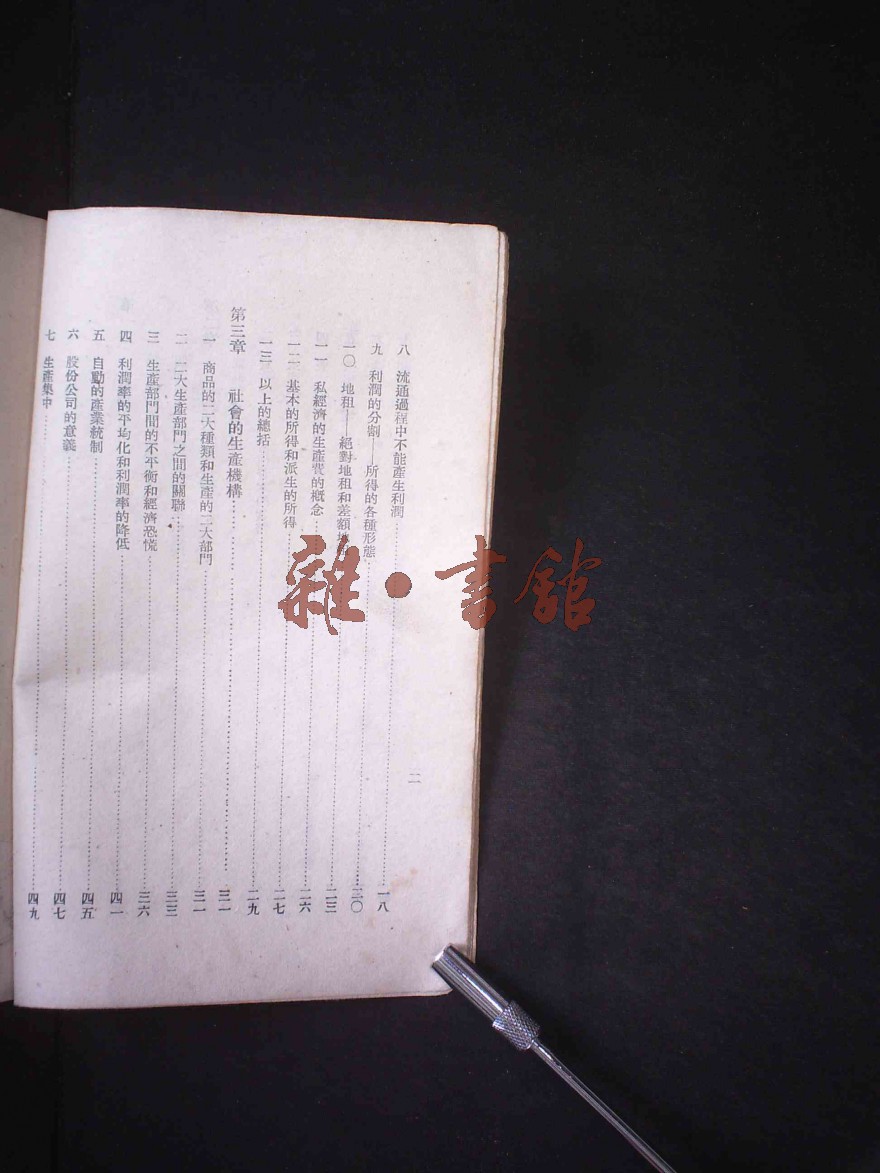 二
八　流通過程中不能產生利潤……一八
九　利潤的分割——所得的各種形態……
一〇　地租——絕對地租和差額地……二〇
一一　私經濟的生產費的概念……二三
一二　基本的所得和派生的所得……二六
一三　以上的總括……二七
第三章　社會的生產機構……二九
一　商品的二大種類和生產的二大部門……三一
二　二大生產部門之間的關聯……三一
三　生產部門間的不平衡和經濟恐慌……三三
四　利潤率的平均化和利潤率的降低……三六
五　自動的產業統制……四一
六　股份公司的意義……四五
七　生產集中……四七
四九
雜·書館